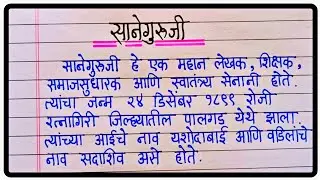 सानेगुरुजी
सानेगुरुजी हे एक महान लेखक, शिक्षक,
समाजसुधारक आणि स्वातंत्र्य सेनानी होते.
त्यांचा जन्म २४ डिसेंबर १८९९ रोजी
रत्नागिरी जिल्ह्यातील पालगड येथे झाला.
त्यांच्या आईचे नाव यशोदाबाई आणि वडिलांचे
नाव सदाशिव असे होते.